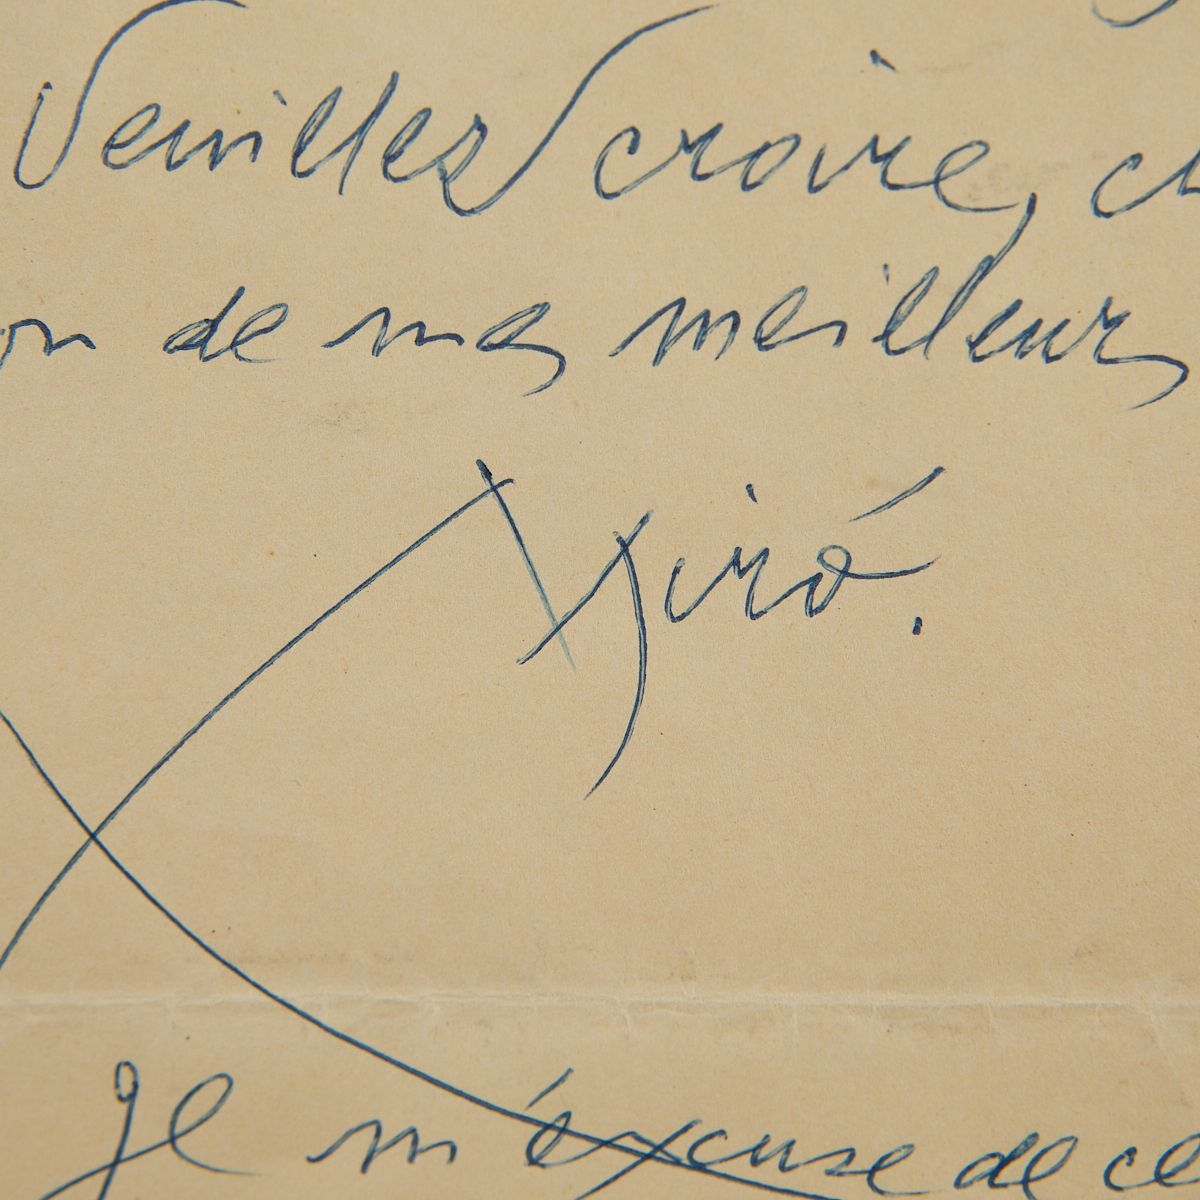 Veuillez croire, ch
on de mes meilleurs
Miró.
Je m'éxcuse de ce